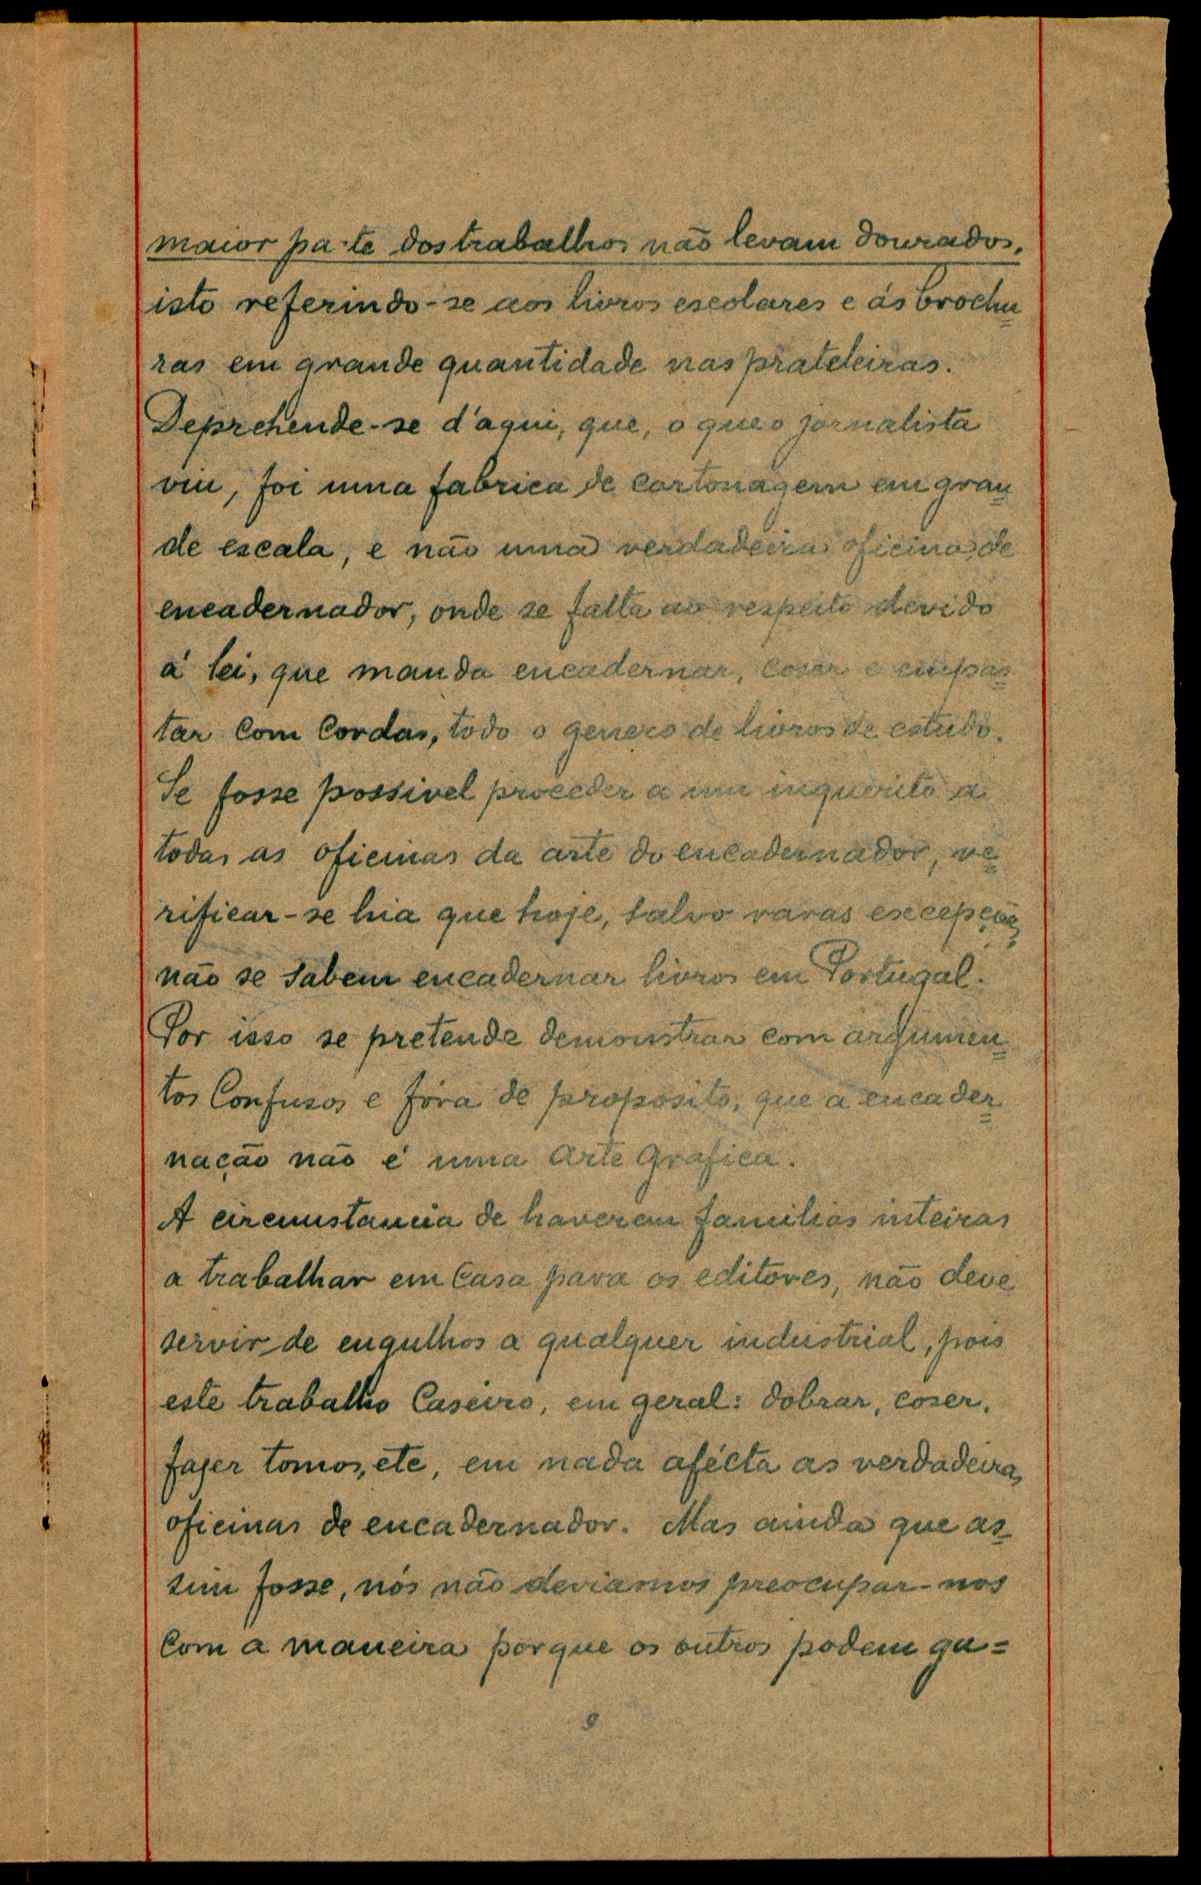 maior parte dos trabalhos não levam dourados,
isto referindo-se aos livros escolares e ás brochu
ras em grande quantidade nas prateleiras.
Deprehende-se d'aqui, que, o que o jornalista
viu, foi uma fabrica de cartonagem em gran
de escala, e não uma verdadeira oficina de
encadernador, onde se falta ao respeito devido
á lei, que manda encadernar, coser e empas
tar com cordas, todo o genero de livros de estudo.
Se fosse possivel proceder a um inquerito a
todas as oficinas da arte do encadernador, ve
rificar-se hia que hoje, salvo raras excepções,
não se sabem encadernar livros em Portugal.
Por isso se pretende demonstrar com argumen
tos Confusos e fóra de proposito, que a encader
nação não é uma Arte Grafica.
A circumstancia de haverem familias inteiras
a trabalhar em Casa para os editores, não deve
servir de engulhos a qualquer industrial, pois
este trabalho Caseiro, em geral: dobrar, coser,
fazer tomos, etc, em nada afécta as verdadeiras
oficinas de encadernador. Mas ainda que as
sim fosse, nós não deviamos preocupar-nos
Com a maneira porque os outros podem ga=
9